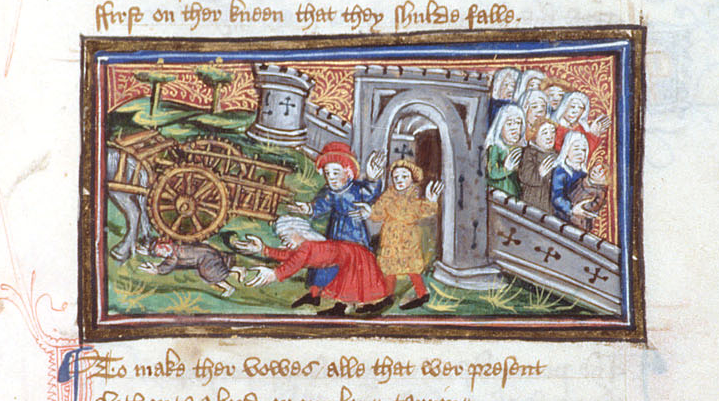 ffirst on ther kneen that they shulde falle.
To make ther vowes alle that wer present